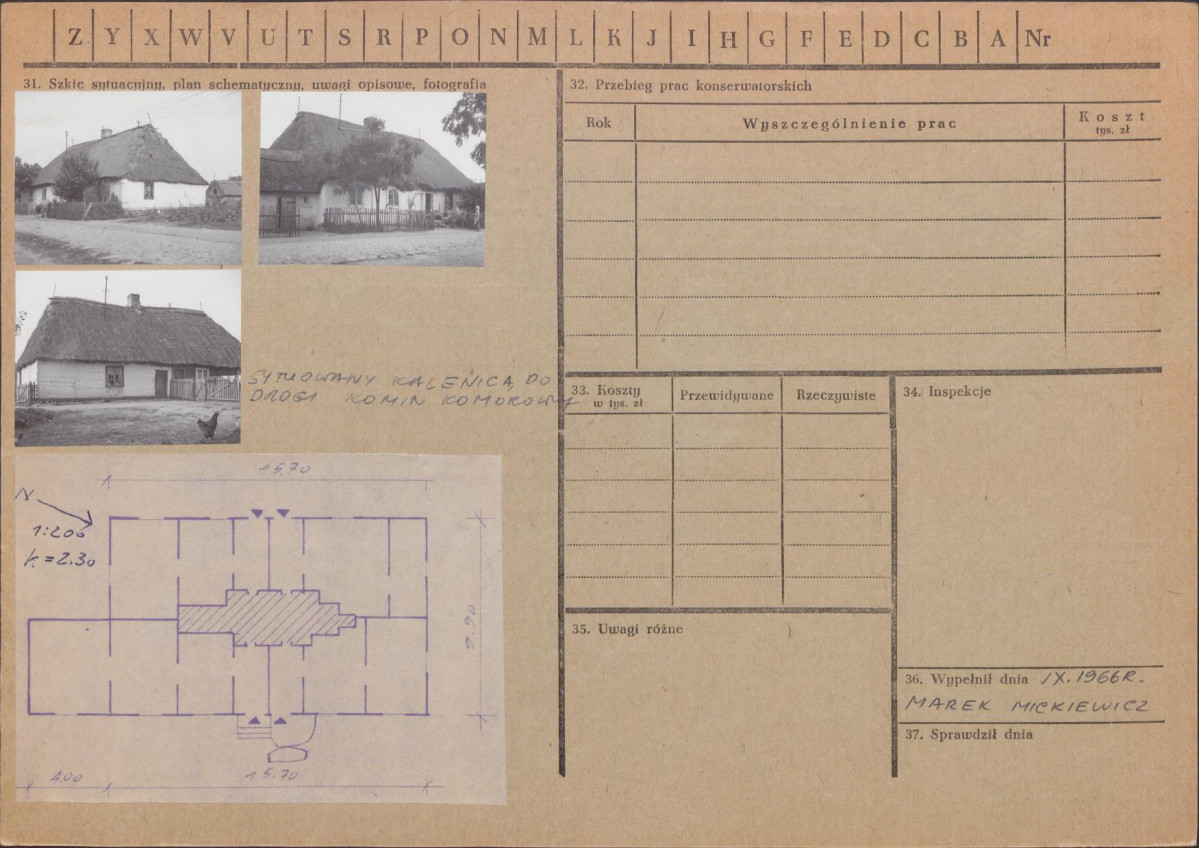 Z Y X W V U T S R P O N M L K J I H G F E D C B A Nr
31. Szkic sytuacyjny, plan schematyczny, uwagi opisowe, fotografia
SYTUOWANY KALENICĄ DO
DROGI KOMIN KOMOROWY
15.70
N
1:200
k=2.30
9.90
4.00
15.70
32. Przebieg prac konserwatorskich
Rok
Wyszczególnienie prac
Koszt
tys. zł
33. Koszty
w tys. zł
Przewidywane
Rzeczywiste
34. Inspekcje
35. Uwagi różne
36. Wypełnił dnia IX.1966R.
MAREK MICKIEWICZ
37. Sprawdził dnia